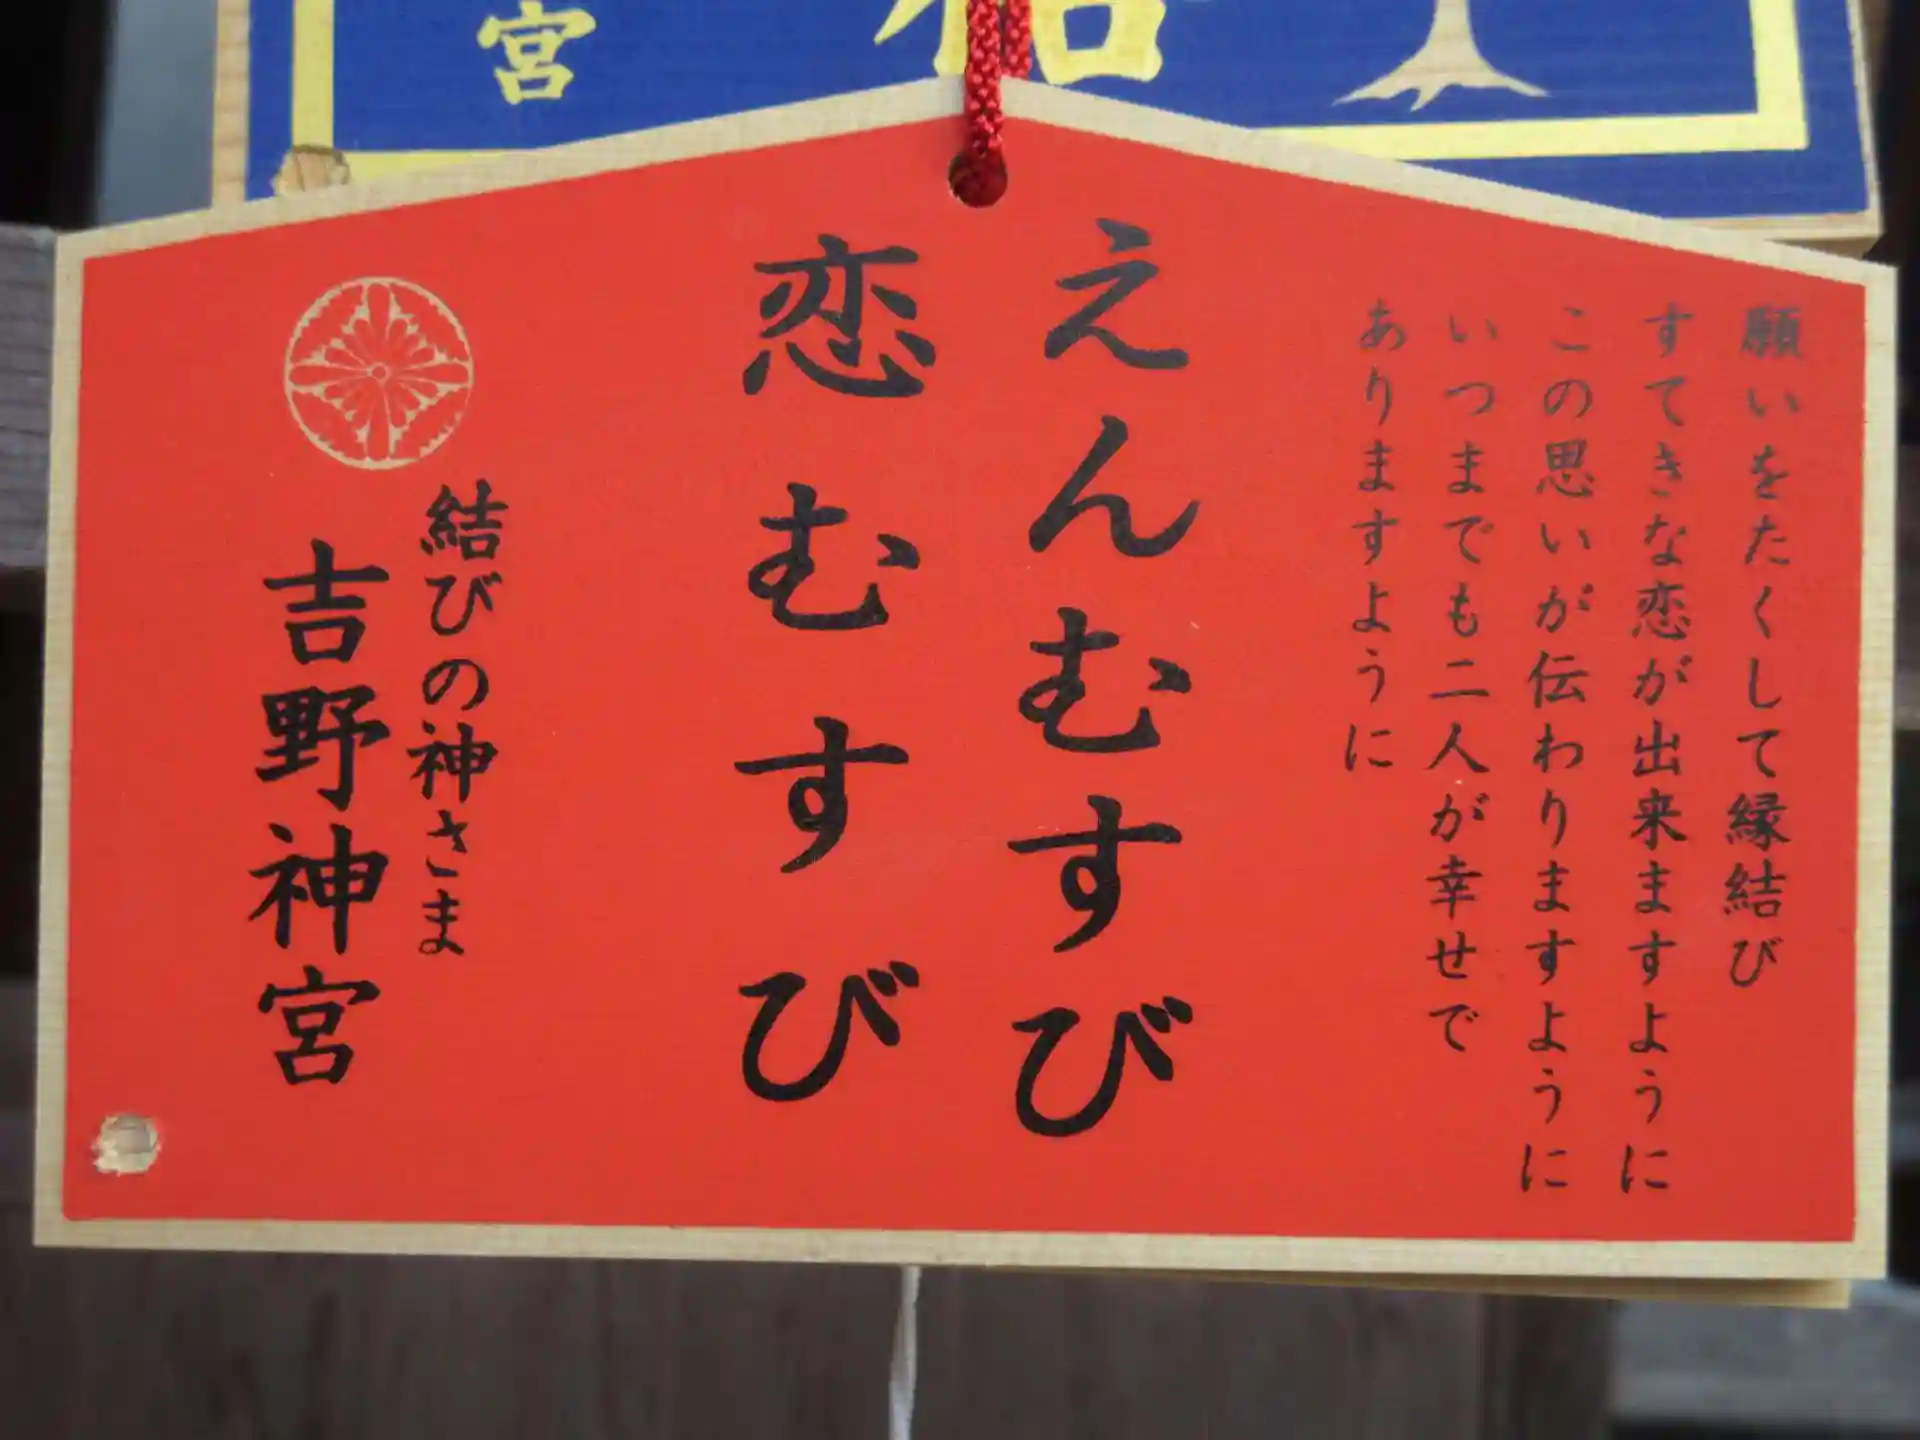 願いをたくして縁結び
すてきな恋が出来ますように
この思いが伝わりますように
いつまでも二人が幸せで
ありますように
えんむすび
恋むすび
結びの神さま
吉野神宮
宮